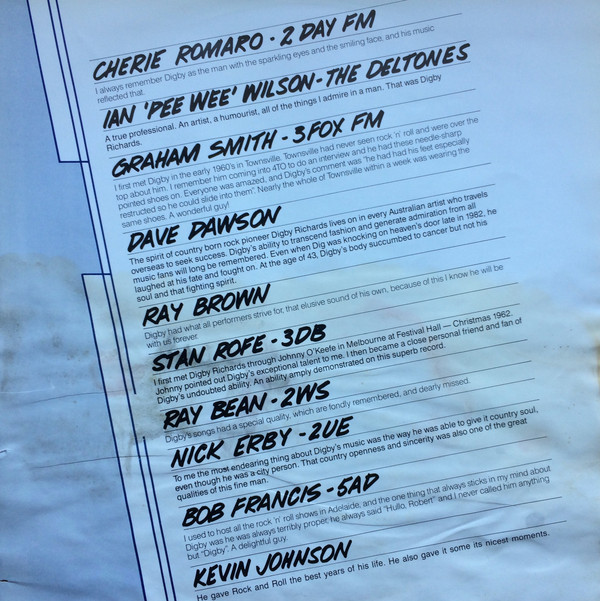 CHERIE ROMARO - 2 DAY FM
I always remember Digby as the man with the sparkling eyes and the smiling face, and his music
reflected that.
IAN 'PEE WEE' WILSON - THE DELTONES
A true professional. An artist, a humourist, all of the things I admire in a man. That was Digby
Richards.
GRAHAM SMITH - 3FOX FM
I first met Digby in the early 1960's in Townsville. Townsville had never seen rock 'n' roll and were over the
top about him. I remember him coming into 4TO to do an interview and he had these needle-sharp
pointed shoes on. Everyone was amazed, and Digby's comment was "he had had his feet especially
restructed so he could slide into them". Nearly the whole of Townsville within a week was wearing the
same shoes. A wonderful guy!
DAVE DAWSON
The spirit of country born rock pioneer Digby Richards lives on in every Australian artist who travels
overseas to seek success. Digby's ability to transcend fashion and generate admiration from all
music fans will long be remembered. Even when Dig was knocking on heaven's door late in 1982, he
laughed at his fate and fought on. At the age of 43, Digby's body succumbed to cancer but not his
soul and that fighting spirit.
RAY BROWN
Digby had what all performers strive for, that elusive sound of his own, because of this I know he will be
with us forever.
STAN ROFE - 3DB
I first met Digby Richards through Johnny O'Keefe in Melbourne at Festival Hall — Christmas 1962.
Johnny pointed out Digby's exceptional talent to me. I then became a close personal friend and fan of
Digby's undoubted ability. An ability amply demonstrated on this superb record.
RAY BEAN - 2WS
Digby's songs had a special quality, which are fondly remembered, and dearly missed.
NICK ERBY - 2UE
To me the most endearing thing about Digby's music was the way he was able to give it country soul,
even though he was a city person. That country openness and sincerity was also one of the great
qualities of this fine man.
BOB FRANCIS - 5AD
I used to host all the rock 'n' roll shows in Adelaide, and the one thing that always sticks in my mind about
Digby was he was always terribly proper, he always said "Hullo, Robert" and I never called him anything
but "Digby". A delightful guy.
KEVIN JOHNSON
He gave Rock and Roll the best years of his life. He also gave it some its nicest moments.